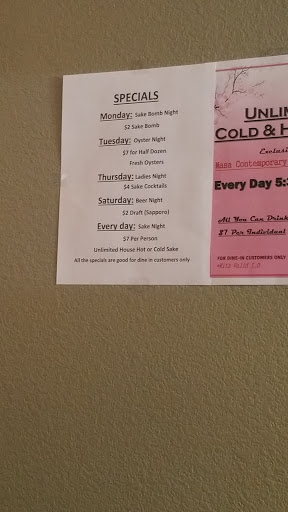 SPECIALS
Monday: Sake Bomb Night
$2 Sake Bomb
Tuesday: Oyster Night
$7 for Half Dozen
Fresh Oysters
Thursday: Ladies Night
$4 Sake Cocktails
Saturday: Beer Night
$2 Draft (Sapporo)
Every day: Sake Night
$7 Per Person
Unlimited House Hot or Cold Sake
All the specials are good for dine in customers only
UNLIM
COLD & H
Masa Contemporary
Every Day 5:
All You Can Drink
$7 Per Individual
FOR DINE-IN CUSTOMERS ONLY